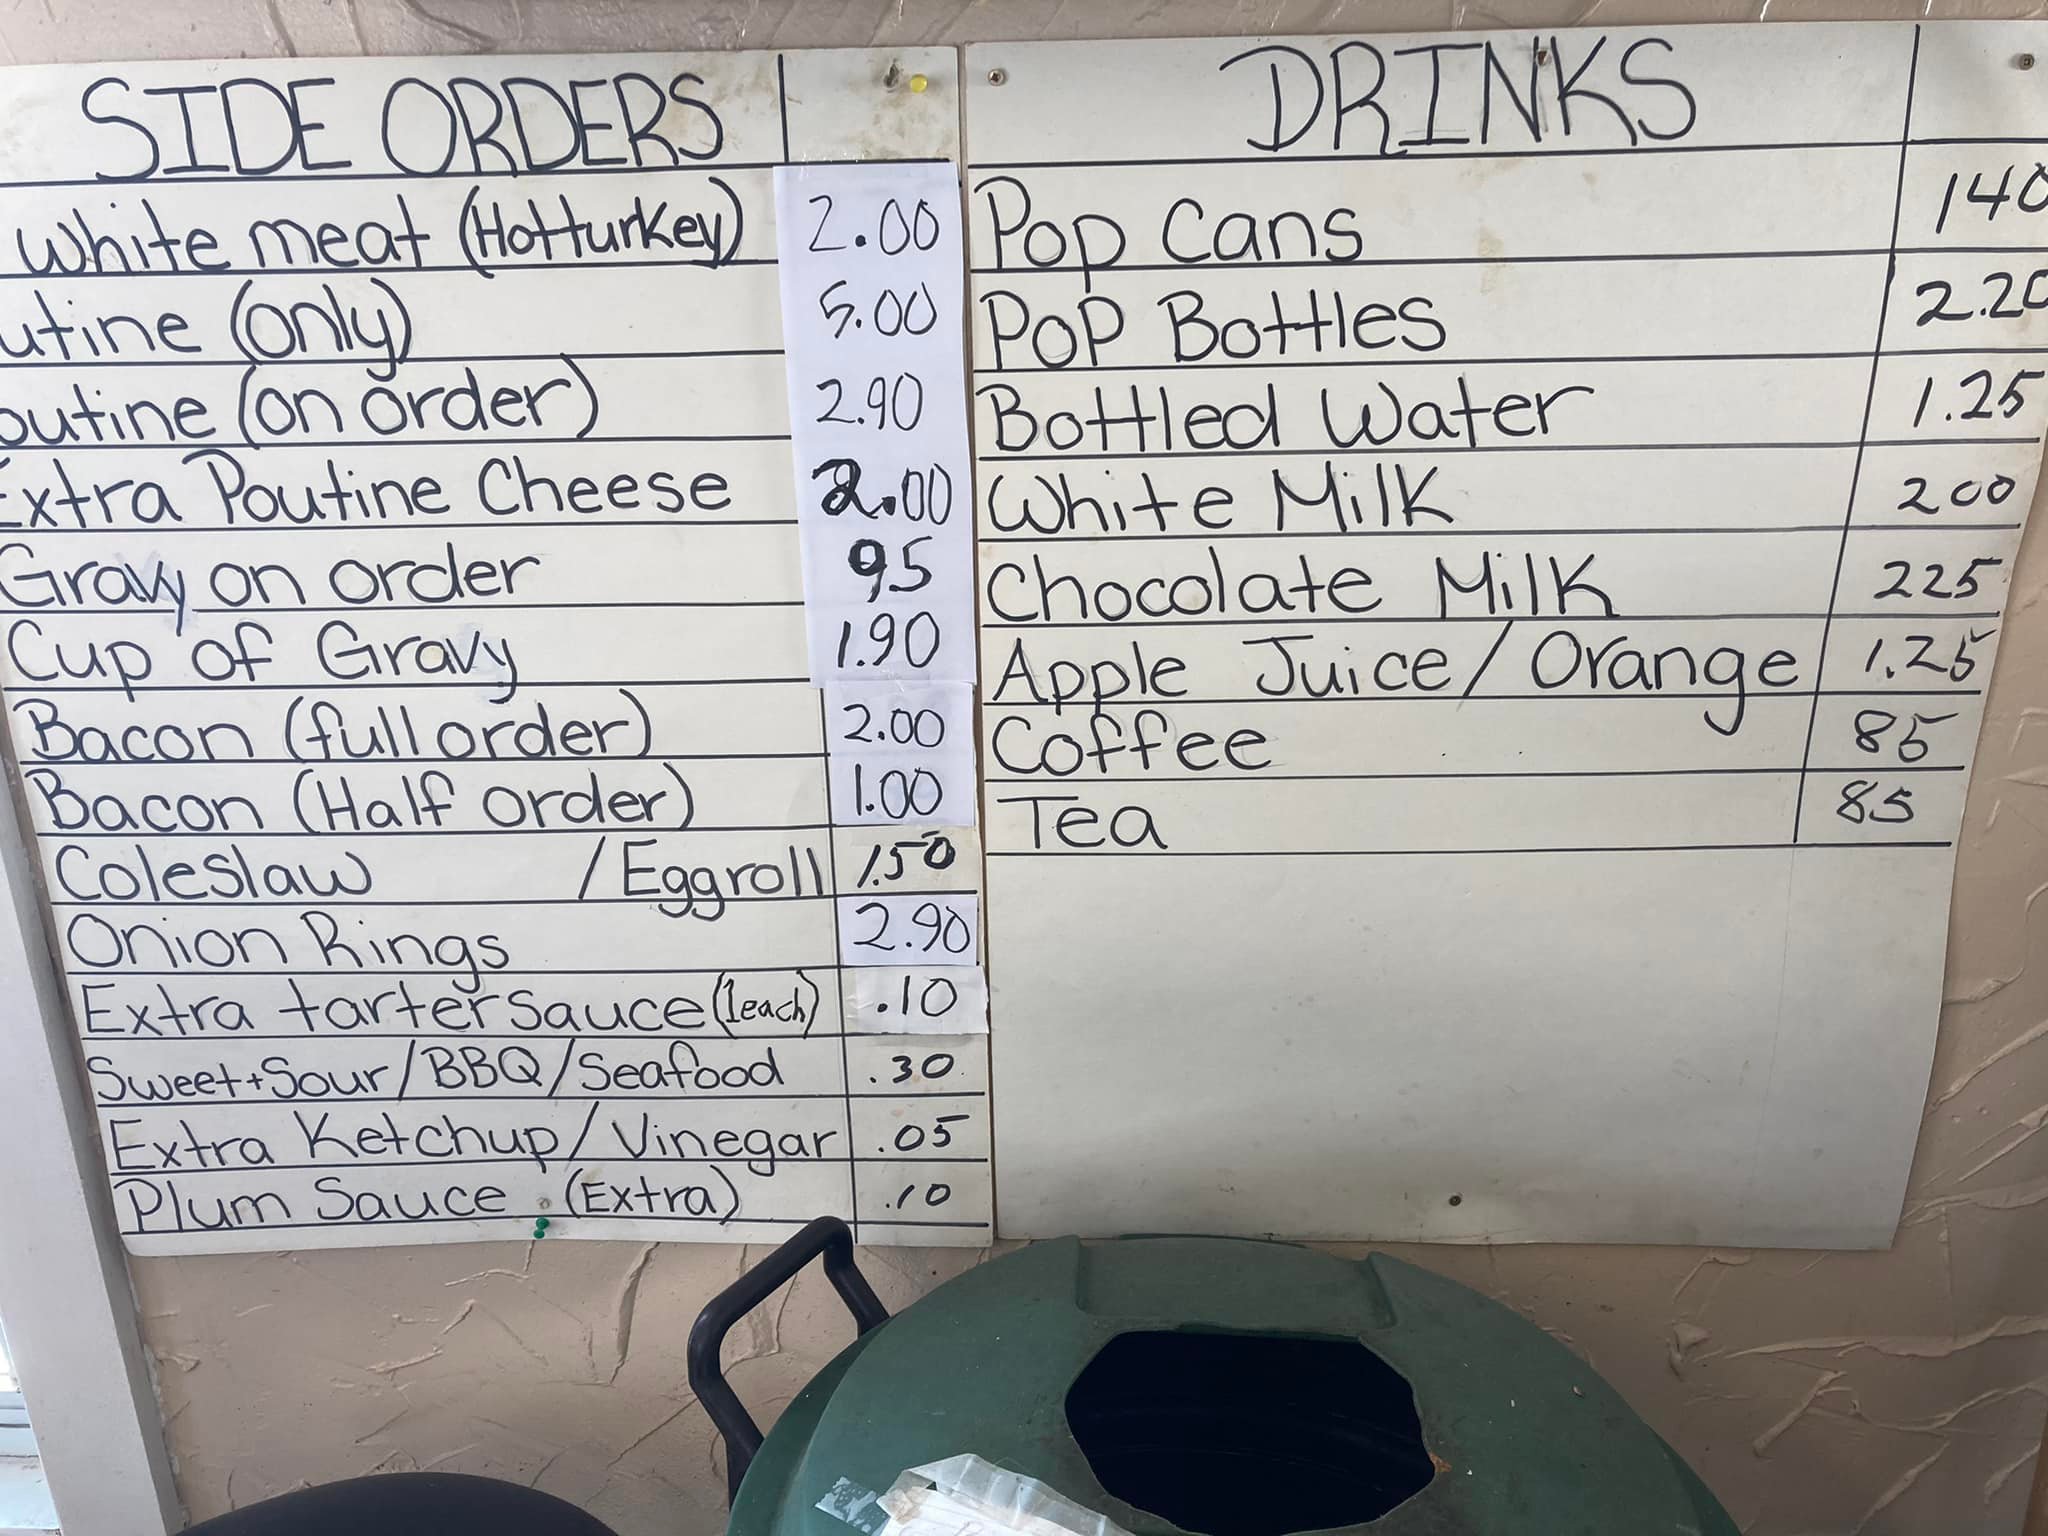 SIDE ORDERS
White meat (Hot turkey) 2.00
utine (only) 5.00
outine (on order) 2.90
Extra Poutine Cheese 2.00
Gravy on order 95
Cup of Gravy 1.90
Bacon (full order) 2.00
Bacon (Half order) 1.00
Coleslaw / Eggroll 1.50
Onion Rings 2.90
Extra tarter sauce (1each) .10
Sweet + Sour / BBQ / Seafood .30
Extra Ketchup / Vinegar .05
Plum Sauce (Extra) .10
DRINKS
Pop Cans 140
Pop Bottles 2.20
Bottled Water 1.25
White Milk 200
Chocolate Milk 225
Apple Juice / Orange 1.25
Coffee 85
Tea 85